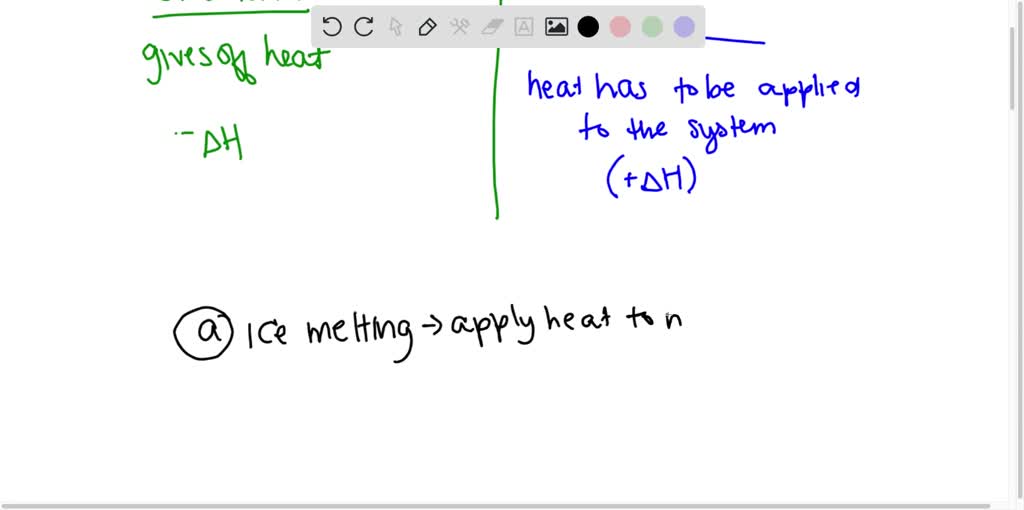 gives off heat
- ΔH
heat has to be applied
to the system
(+ΔH)
a Ice melting → apply heat to n